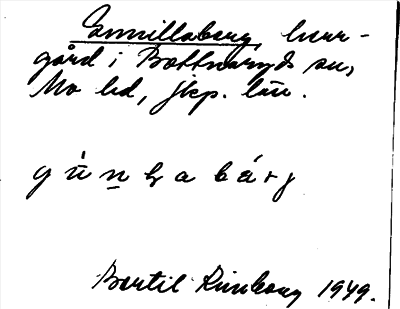 Gunnillaberg, herr-
gård i Bottnaryds sn,
Mo hd, Jkp. län.
Bertil Rimborg 1949.